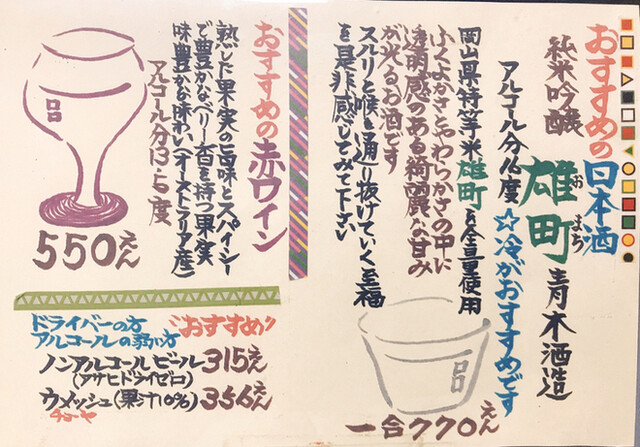 おすすめの日本酒
純米吟醸
雄町 青木酒造
おまち
アルコール分16度 ☆冷がおすすめです
岡山県特等米雄町を全量使用
ふくよかさとやわらかさの中に
透明感のある綺麗な甘み
が光るお酒です
スルリと喉を通り抜けていく至福
を是非感じてみて下さい
一合770えん
おすすめの赤ワイン
熟した果実の旨味とスパイシー
で豊かなベリー香を持つ果実
味豊かな味わい(オーストラリア産)
アルコール分13.5度
550えん
ドライバーの方
アルコールの弱い方
"おすすめ"
ノンアルコールビール 315えん
(アサヒドライゼロ)
ウメッシュ(果汁10%) 356えん
チョーヤ